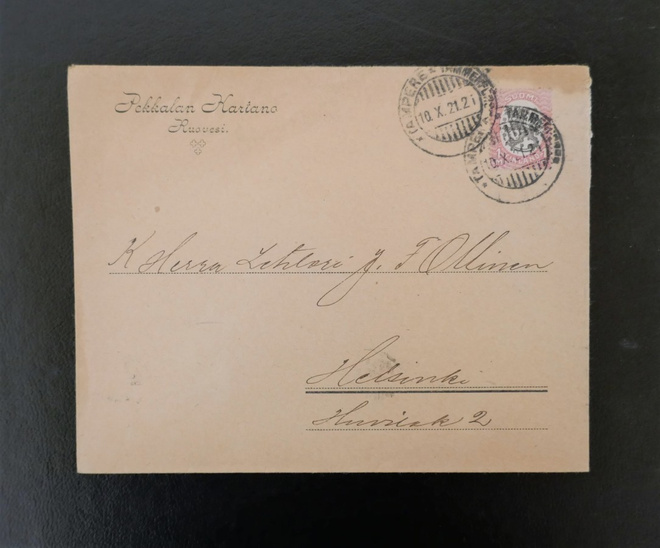 Pekkalan Kartano
Ruovesi.
TAMPERE * TAMMERFORS
10. X. 21. 21
SUOMI
K Herra Lehtori J. F Ollinen
Helsinki
Huvilak 2